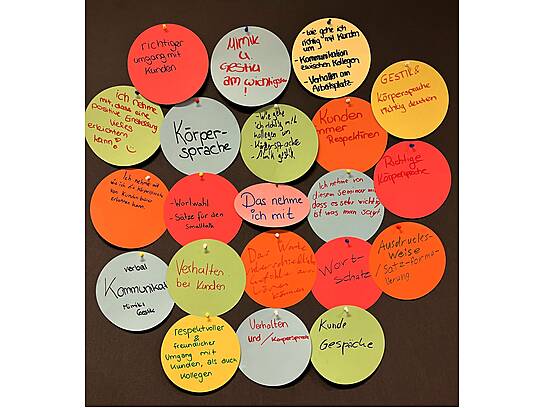 richtiger
umgang mit
Kunden
Mimik
u
Gestik
am wichtigsten
!
- Wie gehe ich
richtig mit Kunden
um
- Kommunikation
zwischen Kollegen
- Verhalten am
Arbeitsplatz
GESTIK &
Körpersprache
richtig deuten
ich nehme
mit, dass eine
positive Einstellung
vieles
erleichtern
kann!
Körper-
sprache
- Wie gehe
ich richtig mit
kollegen um
- Körpersprache
- Auch gestik
Kunden
immer
Respektieren
Richtige
Körpersprache
Ich nehme mit
wie ich die Körpersprache
von Kunden besser
kann.
- Wortwahl
- Sätze für den
Smalltalk
Das nehme
ich mit
Ich nehme von
diesem Seminar mit
dass es sehr wichtig
ist was man sagt.
Das Worte
unterschiedliche
Gefühle
können
Wort-
schatz
Ausdrucks-
Weise
/Satz-formu-
lierung
verbal
Kommunikat
Mimik &
Gestik
Verhalten
bei Kunden
respektvoller
&
freundlicher
Umgang mit
Kunden, als auch
Kollegen
Verhalten
und /Körpersprache
Kunde
Gespäche